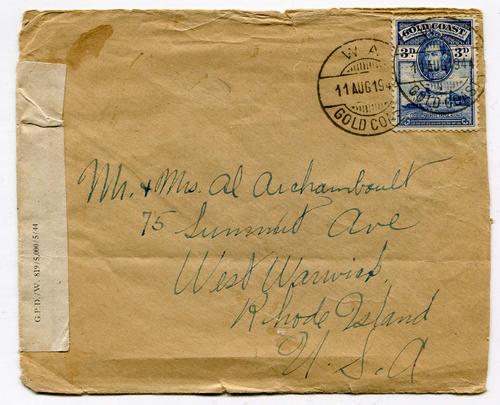 GOLD COAST
3D. 3D.
WA
11 AUG 194
GOLD CO
11 AUG 194
GOLD COA
Mr. & Mrs. Al Archambault
75 Summit Ave
West Warwick
Rhode Island
U.S.A
G.P.D./W. 819/5,000/5/44